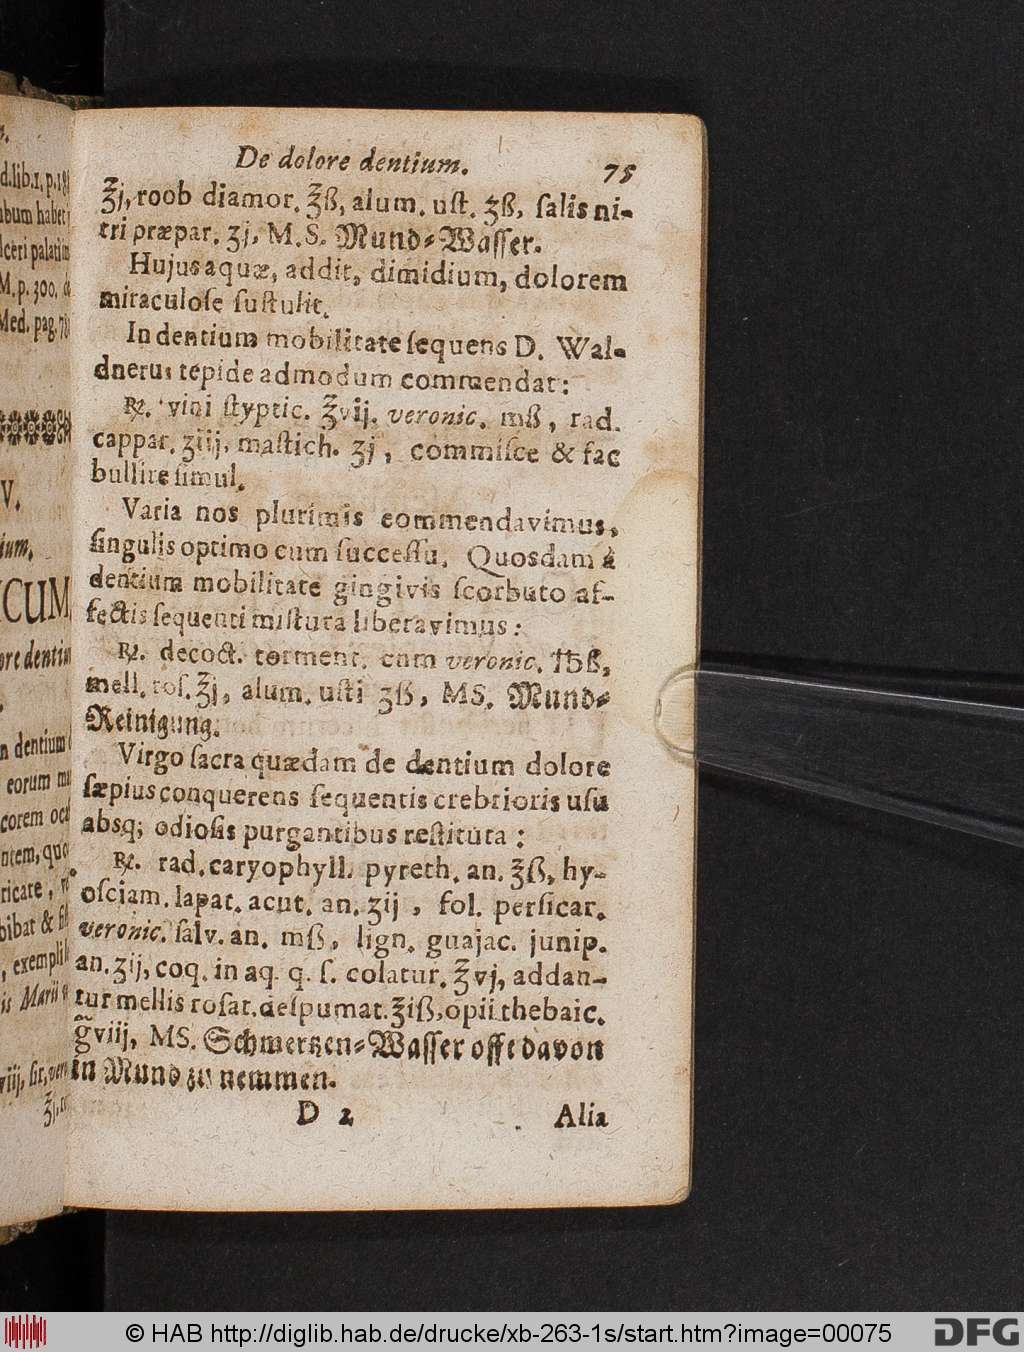 De dolore dentium. 75
℥j, roob diamor. ℥ß, alum. uſt. ʒß, ſalis ni-
tri præpar. ʒj, M.S. Mund-Waſſer.
Hujus aquæ, addit, dimidium, dolorem
miraculoſe ſuſtulit.
In dentium mobilitate ſequens D. Wal-
dnerus tepide admodum commendat:
℞. vini ſtyptic. ℥vij. veronic. mß, rad.
cappar. ʒiij, maſtich. ʒj, commiſce & fac
bullire ſimul.
Varia nos plurimis commendavimus,
ſingulis optimo cum ſucceſſu. Quosdam à
dentium mobilitate gingivis ſcorbuto af-
fectis ſequenti miſtura liberavimus:
℞. decoct. torment. cum veronic. ℔ß,
mell. roſ. ℥j, alum. uſti ʒß, MS. Mund-
Reinigung.
Virgo ſacra quædam de dentium dolore
ſæpius conquerens ſequentis crebrioris uſu
absq; odioſis purgantibus reſtituta:
℞. rad. caryophyll. pyreth. an. ℥ß, hy-
oſciam. lapat. acut. an. ʒij, fol. perſicar.
veronic. ſalv. an. mß, lign. guajac. junip.
an. ʒij, coq. in aq. q. ſ. colatur. ℥vj, addan-
tur mellis roſat. deſpumat. ℥iß, opii thebaic.
g̃viij, MS. Schmertzen-Waſſer offt davon
in Mund zu nemmen.
D 2 Alia
d. lib. 1, p. 18
ulceri palati
M. p. 300,
Med. pag. 78
V.
ium.
ICUM
ore dentiu
n dentium
eorum
corem
ntem, quo
ricare,
bibat &
, exempli
is Marii
viij, ſir, vero
℥j,
© HAB http://diglib.hab.de/drucke/xb-263-1s/start.htm?image=00075
DFG